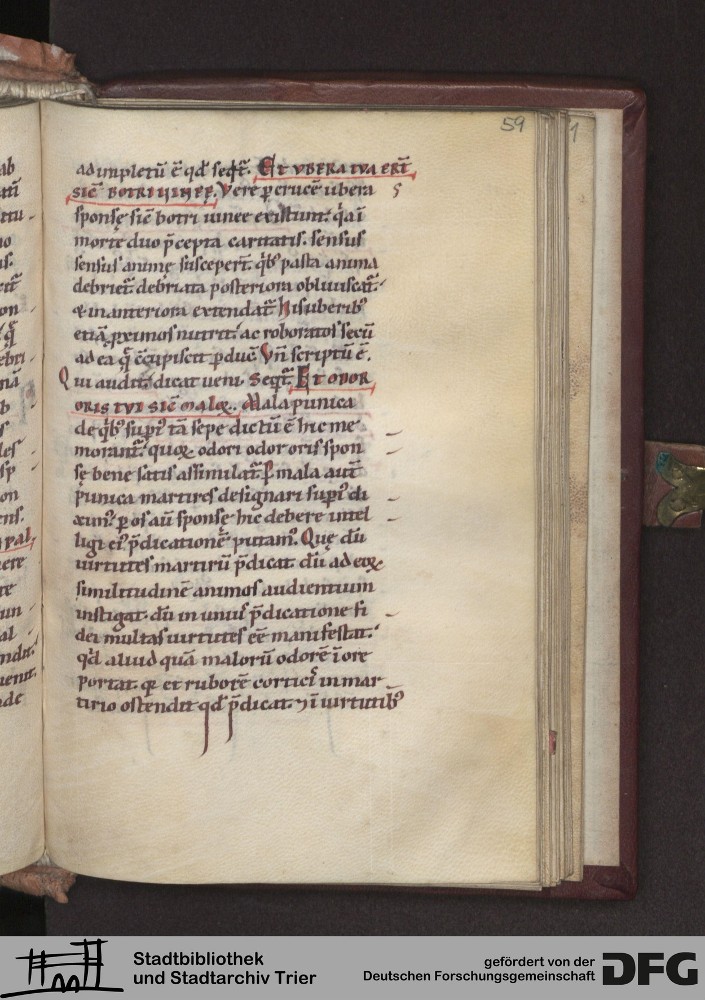 59
1
adimpletū ē qd seqt̃. Et vbera tva erт̄
sic̄ botri vineę. Vere p crucē ubera
sponsę sic̄ botri uineę existunt. q̄a ī
morte duo p̄cepta caritatis. sensus
sensus animę susceper̄t. qb᷒ pasta anima
debriet̃. debriata posteriora obliuiscat̃.
& in anteriora extendat̃. His uberib᷒
etiā ꝓximos nutrit. ac roboratos secū
ad ea q̄ c̄cupiscit pduc̄. Vn̄ scriptū ē.
Qui audit. dicat ueni. Seqt̃. Et odor
oris tvi sic̄ maloꝝ. Mala punica
de qb᷒ supi᷒ tā sepe dictū ē hic me
morant̃. quoꝝ odori odor oris spon
sę bene satis assimilat̃. P mala aut̄
punica martires designari supi᷒ di
xim᷒. p os aū sponsę hic debere intel
ligi ei᷒ p̄dicationē putam᷒. Quę dū
uirtutes martirū p̄dicat. dū ad eoꝝ
similitudinē animos audientium
instigat. dū in unius p̄dicatione fi
dei multas uirtutes eē manifestat.
qd aliud quā maloꝝ odorē ī ore
portat. q et ruborē corticis in mar
tirio ostendit qd p̄dicat. ⁊ ī uirtutib᷒
Stadtbibliothek
und Stadtarchiv Trier
gefördert von der
Deutschen Forschungsgemeinschaft
DFG